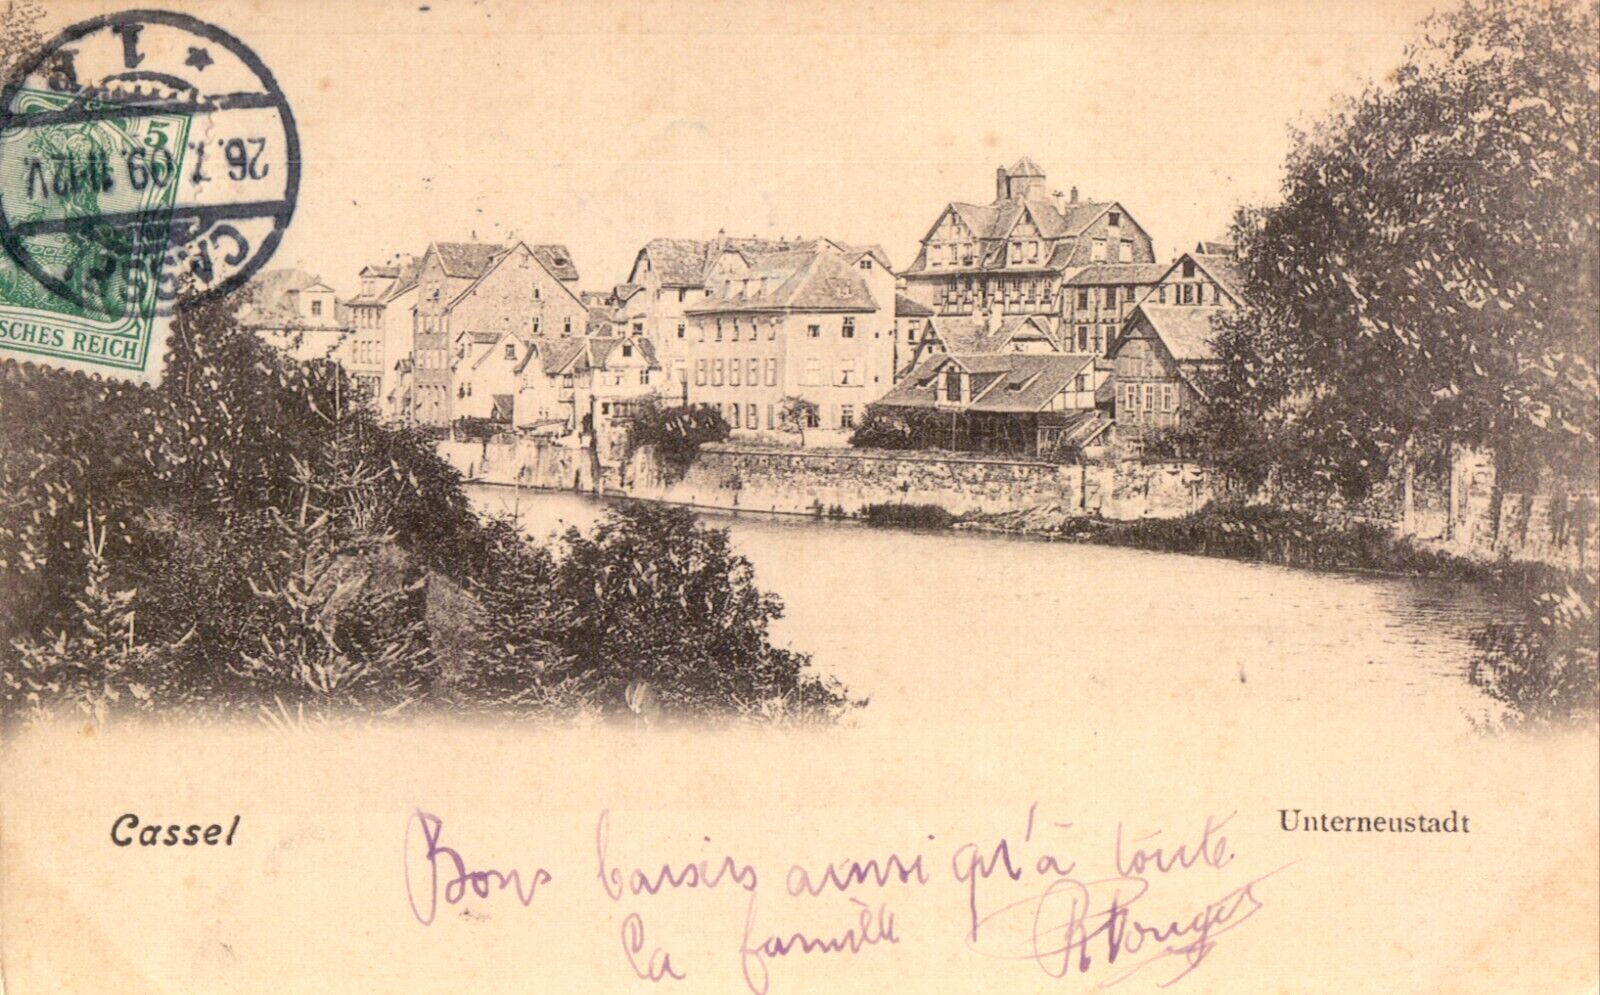 1 R
5
26.7.09.11-12V
CASSEL
SCHES REICH
Cassel
Unterneustadt
Bons baisers ainsi qu'à toute
la famille